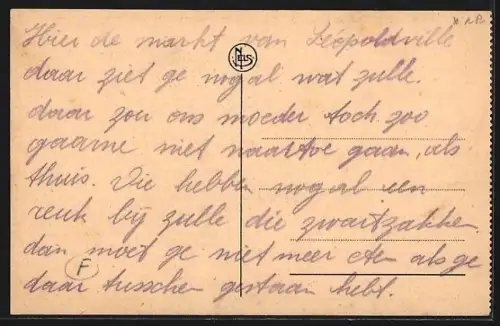 Hier de markt van Léopoldville
NELS
daar ziet ge nog al wat zulle.
daar zou ons moeder toch zoo
gaarne niet naartoe gaan, als
thuis. Die hebben nog al een
reuk bij zulle die zwartzakken.
dan moet ge niet meer eten als ge
daar tusschen gestaan hebt.
F